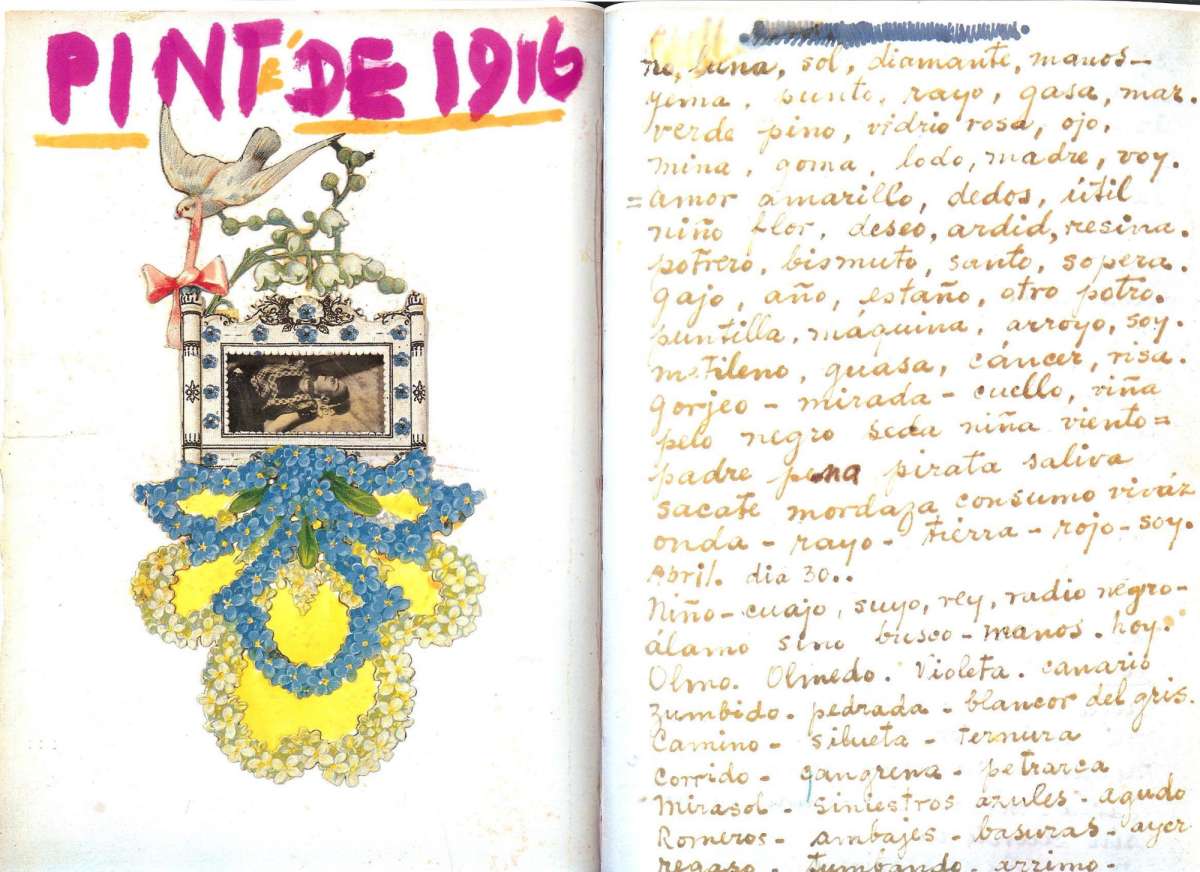 PINTÉ DE 1916
no, luna, sol, diamante, manos -
yema, punto, rayo, gasa, mar.
verde pino, vidrio rosa, ojo,
mina, goma, lodo, madre, voy.
= amor amarillo, dedos, útil
niño flor, deseo, ardid, resina.
potrero, bismuto, santo, sopera.
gajo, año, estaño, otro potro.
puntilla, máquina, arroyo, soy.
metileno, guasa, cáncer, risa.
gorjeo - mirada - cuello, viña
pelo negro seda niña viento =
padre pena pirata saliva
sacate mordaza consumo viváz
onda - rayo - tierra - rojo - soy.
Abril. dia 30..
Niño - cuajo, suyo, rey, radio negro -
álamo sino busco - manos. hoy.
Olmo. Olmedo. Violeta. canario
zumbido - pedrada - blancor del gris.
Camino - silueta - ternura
corrido - gangrena - petrarca
Mirasol - siniestros azules - agudo
Romeros - ambajes - basuras - ayer
regazo - tumbando - arrimo -